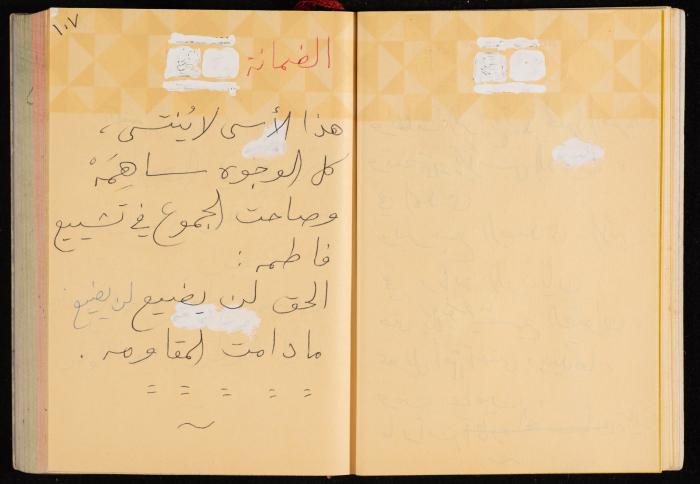 ١٠٧
الضمانة
هذا الأسى لا يُنتسى،
كل الوجوه ساهِمَهْ
وصاحت الجموع في تشييع
فاطمه :
الحق لن يضيع لن يضيع
مادامت المقاومه .